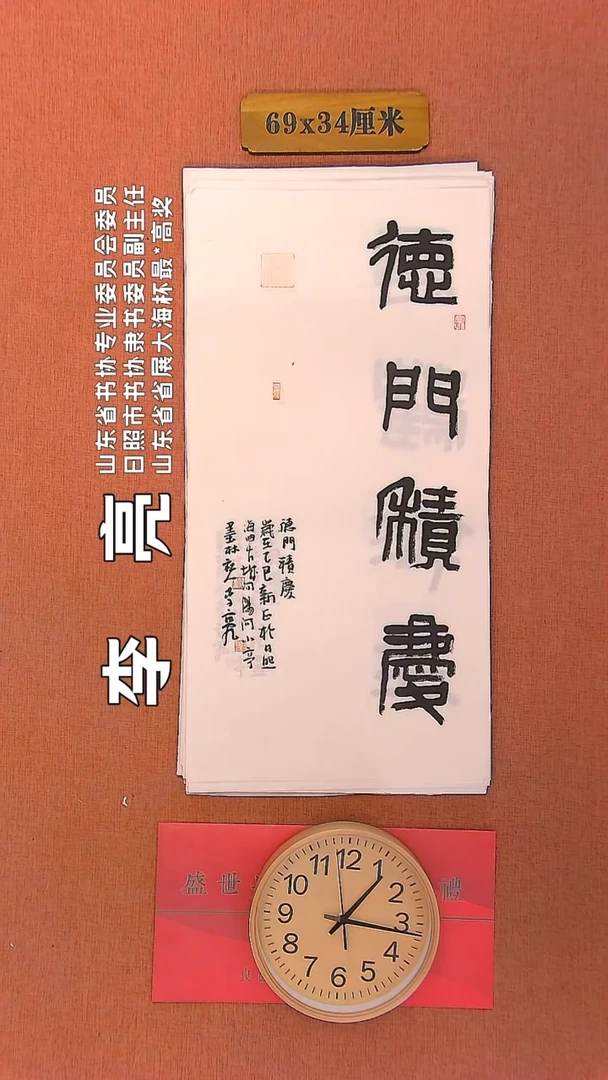 69x34厘米
德門積慶
德門積慶
歲在乙巳新正於日照
海曲古城向陽向小亭
墨林 李亮
山东省书协专业委员会委员
日照市书协隶书委员副主任
山东省省展大海杯最*高奖
李 亮
盛世 禮
12
1
2
3
4
5
6
7
8
9
10
11